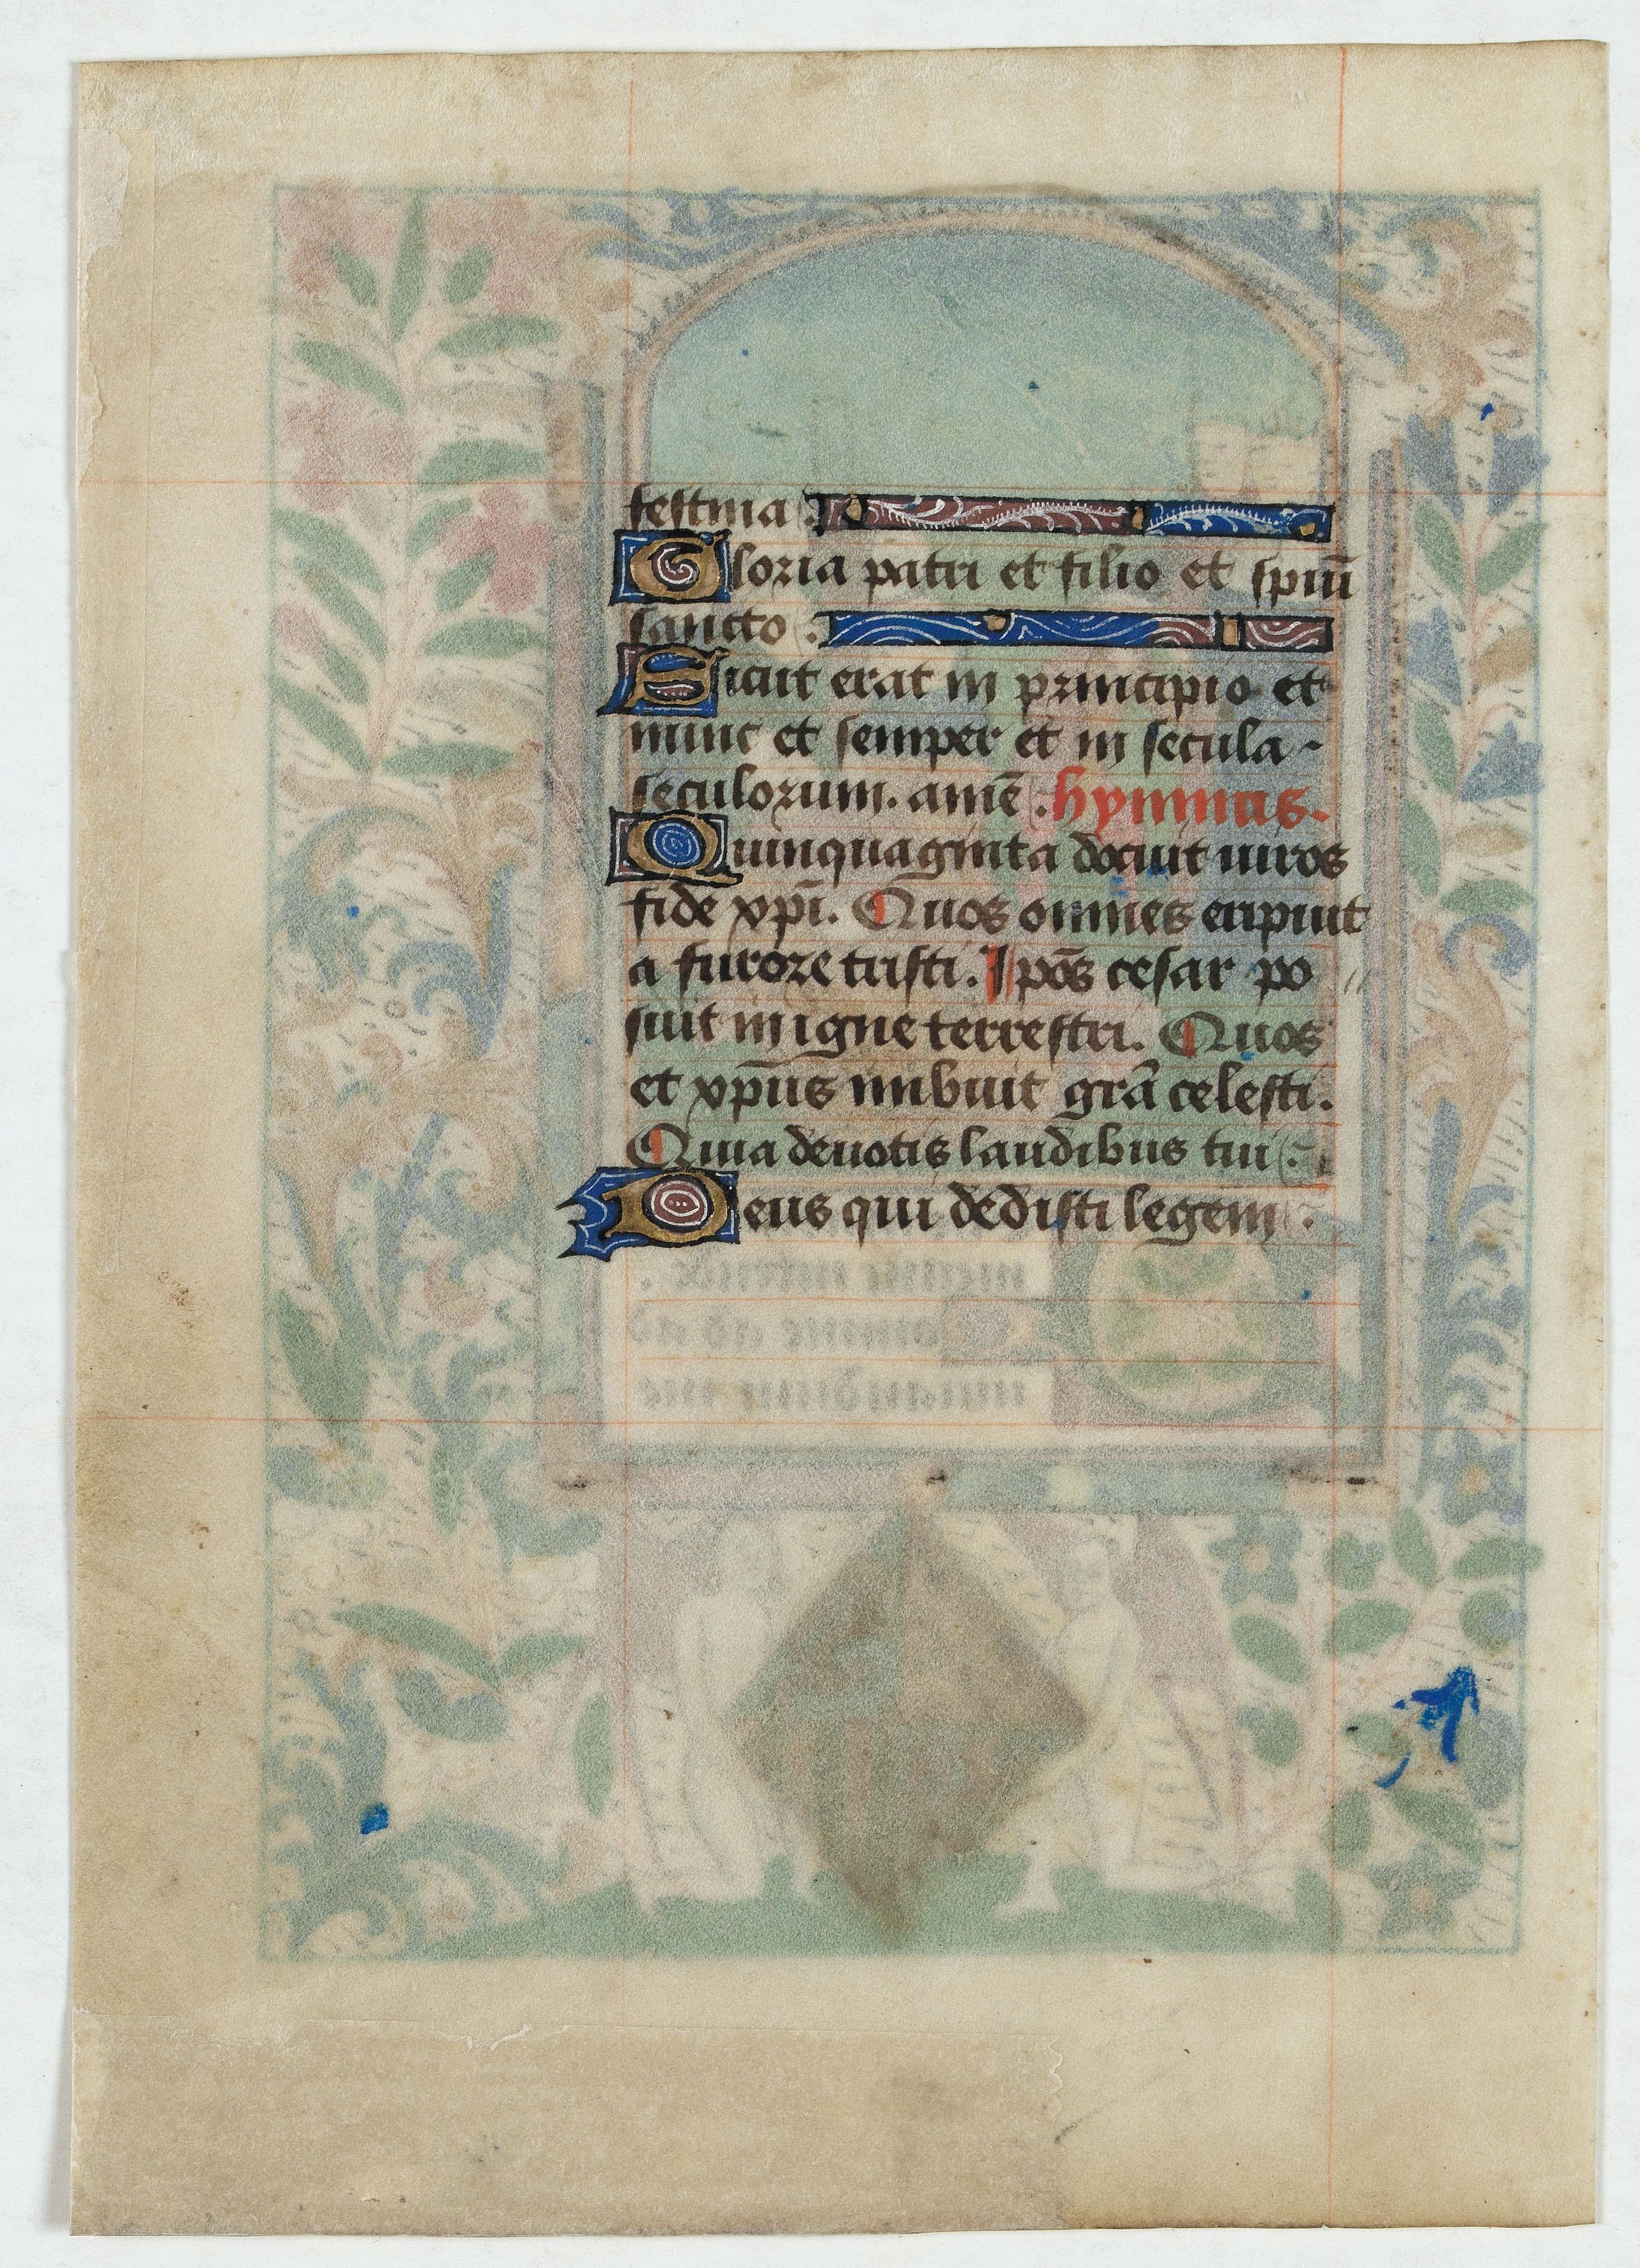 festina
Gloria patri et filio et spiūi
sancto
Sicut erat in principio et
nunc et semper et in secula
seculorum. amē hymnus.
Quinquaginta docuit uiros
fide xp̄i. Quos omnes eripiut
a furore tristi. Ipōs cesar po
suit in igne terrestri. Quos
et xp̄us imbuit grā celesti.
Quia deuotis laudibus tui
Deus qui dedisti legem